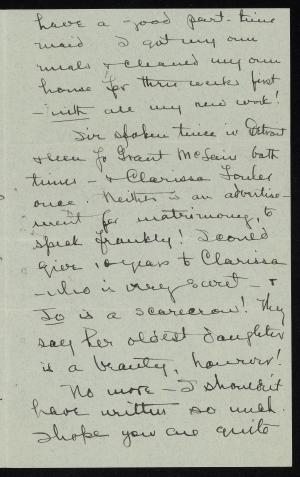 have a good part-time
maid I got my own
meals & cleaned my own
house for three weeks first
- with all my new work!
I've spoken twice in Detroit
& seen Jo Grant McLain both
times - & Clarissa
once. Neither is an advertise-
ment for matrimony, to
speak frankly! I could
give 10 years to Clarissa
- who is very sweet - &
Jo is a scarecrow! They
say her oldest daughter
is a beauty, however!
No more I shouldn't
have written so much.
I hope you are quite